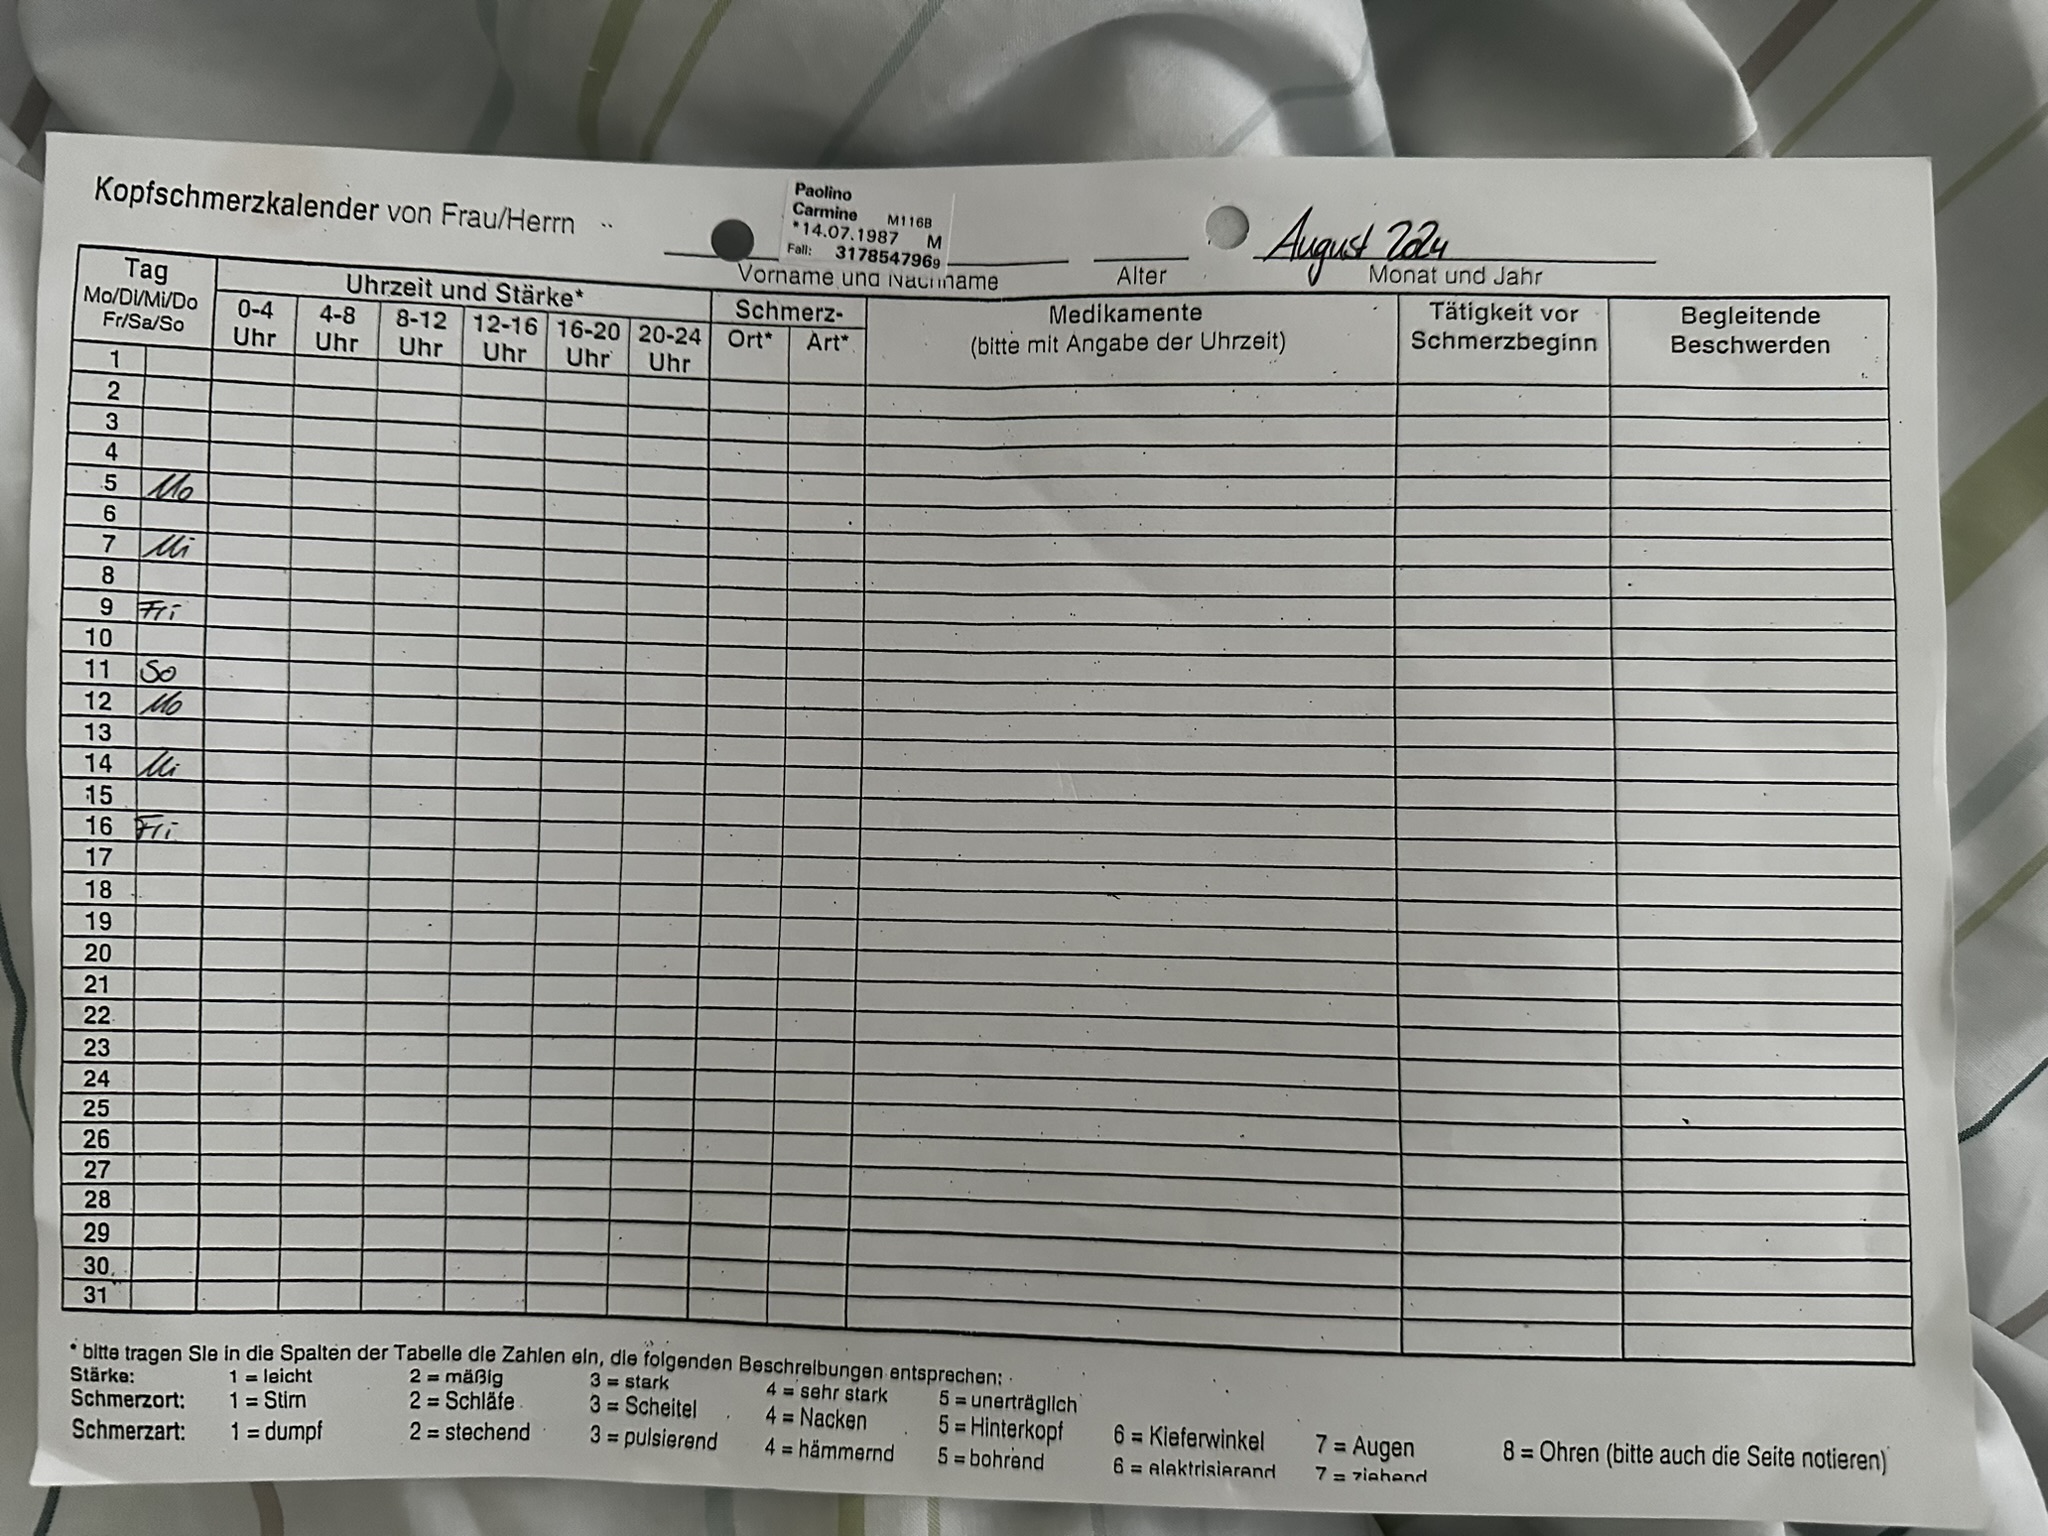 Kopfschmerzkalender von Frau/Herrn
Paolino
Carmine M116B
*14.07.1987 M
Fall: 3178547969
August 2024
Vorname und Nachname
Alter
Monat und Jahr
Tag
Mo/Di/Mi/Do
Fr/Sa/So
Uhrzeit und Stärke*
0-4 Uhr
4-8 Uhr
8-12 Uhr
12-16 Uhr
16-20 Uhr
20-24 Uhr
Schmerz-
Ort* Art*
Medikamente
(bitte mit Angabe der Uhrzeit)
Tätigkeit vor
Schmerzbeginn
Begleitende
Beschwerden
1
2
3
4
5 Mo
6
7 Mi
8
9 Fri
10
11 So
12 Mo
13
14 Mi
15
16 Fri
17
18
19
20
21
22
23
24
25
26
27
28
29
30
31
* bitte tragen Sie in die Spalten der Tabelle die Zahlen ein, die folgenden Beschreibungen entsprechen:
Stärke: 1 = leicht 2 = mäßig 3 = stark 4 = sehr stark 5 = unerträglich
Schmerzort: 1 = Stirn 2 = Schläfe 3 = Scheitel 4 = Nacken 5 = Hinterkopf 6 = Kieferwinkel 7 = Augen 8 = Ohren (bitte auch die Seite notieren)
Schmerzart: 1 = dumpf 2 = stechend 3 = pulsierend 4 = hämmernd 5 = bohrend 6 = elektrisierend 7 = ziehend